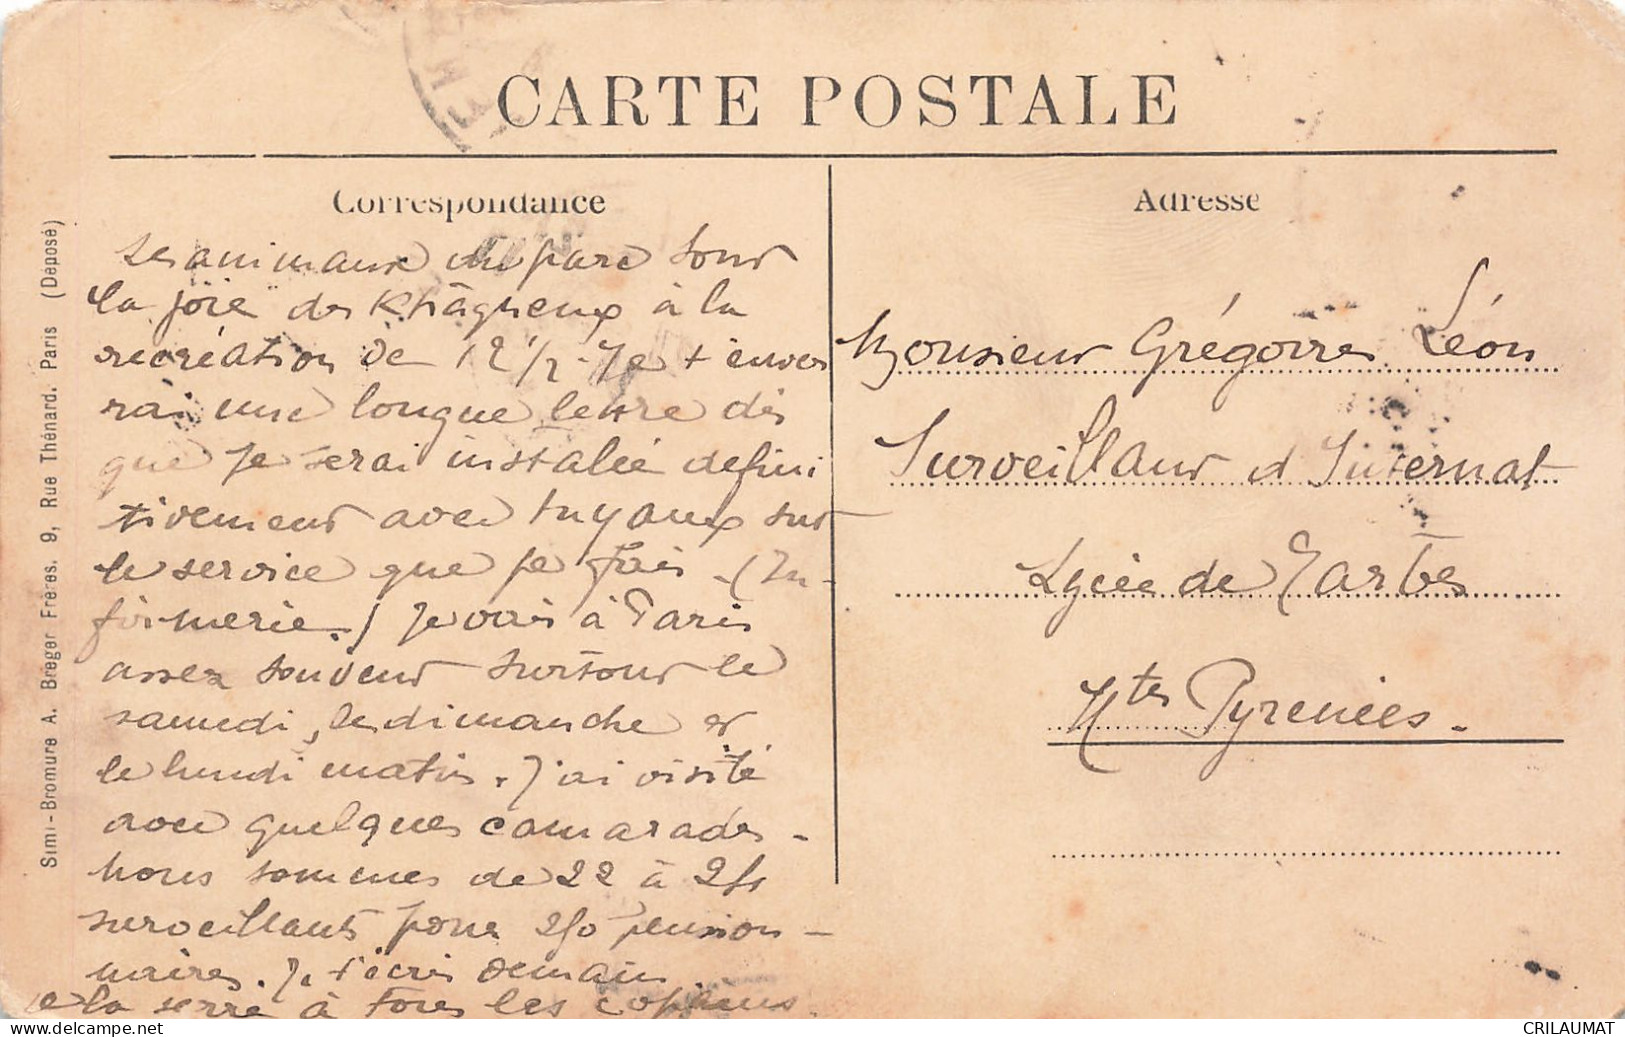 CARTE POSTALE
Correspondance
Adresse
Les animaux du parc sont
la joie des Khâgneux à la
récréation de 12 1/2. Je t'enver
rai une longue lettre dès
que je serai installée défini
tivement avec tuyaux sur
le service que je fais. (In-
firmerie.) Je vais à Paris
assez souvent surtout le
samedi, le dimanche et
le lundi matin. J'ai visité
avec quelques camarades -
nous sommes de 22 à 24
surveillants pour 240 pension-
naires. Je t'écris demain
la serre à tous les copains.
Monsieur Grégoire Léon
Surveillant d'Internat
Lycée de Tarbes
Htes Pyrénées.
Simi-Bromure A. Breger Frères. 9, Rue Thénard. Paris (Déposé)
CRILAUMAT